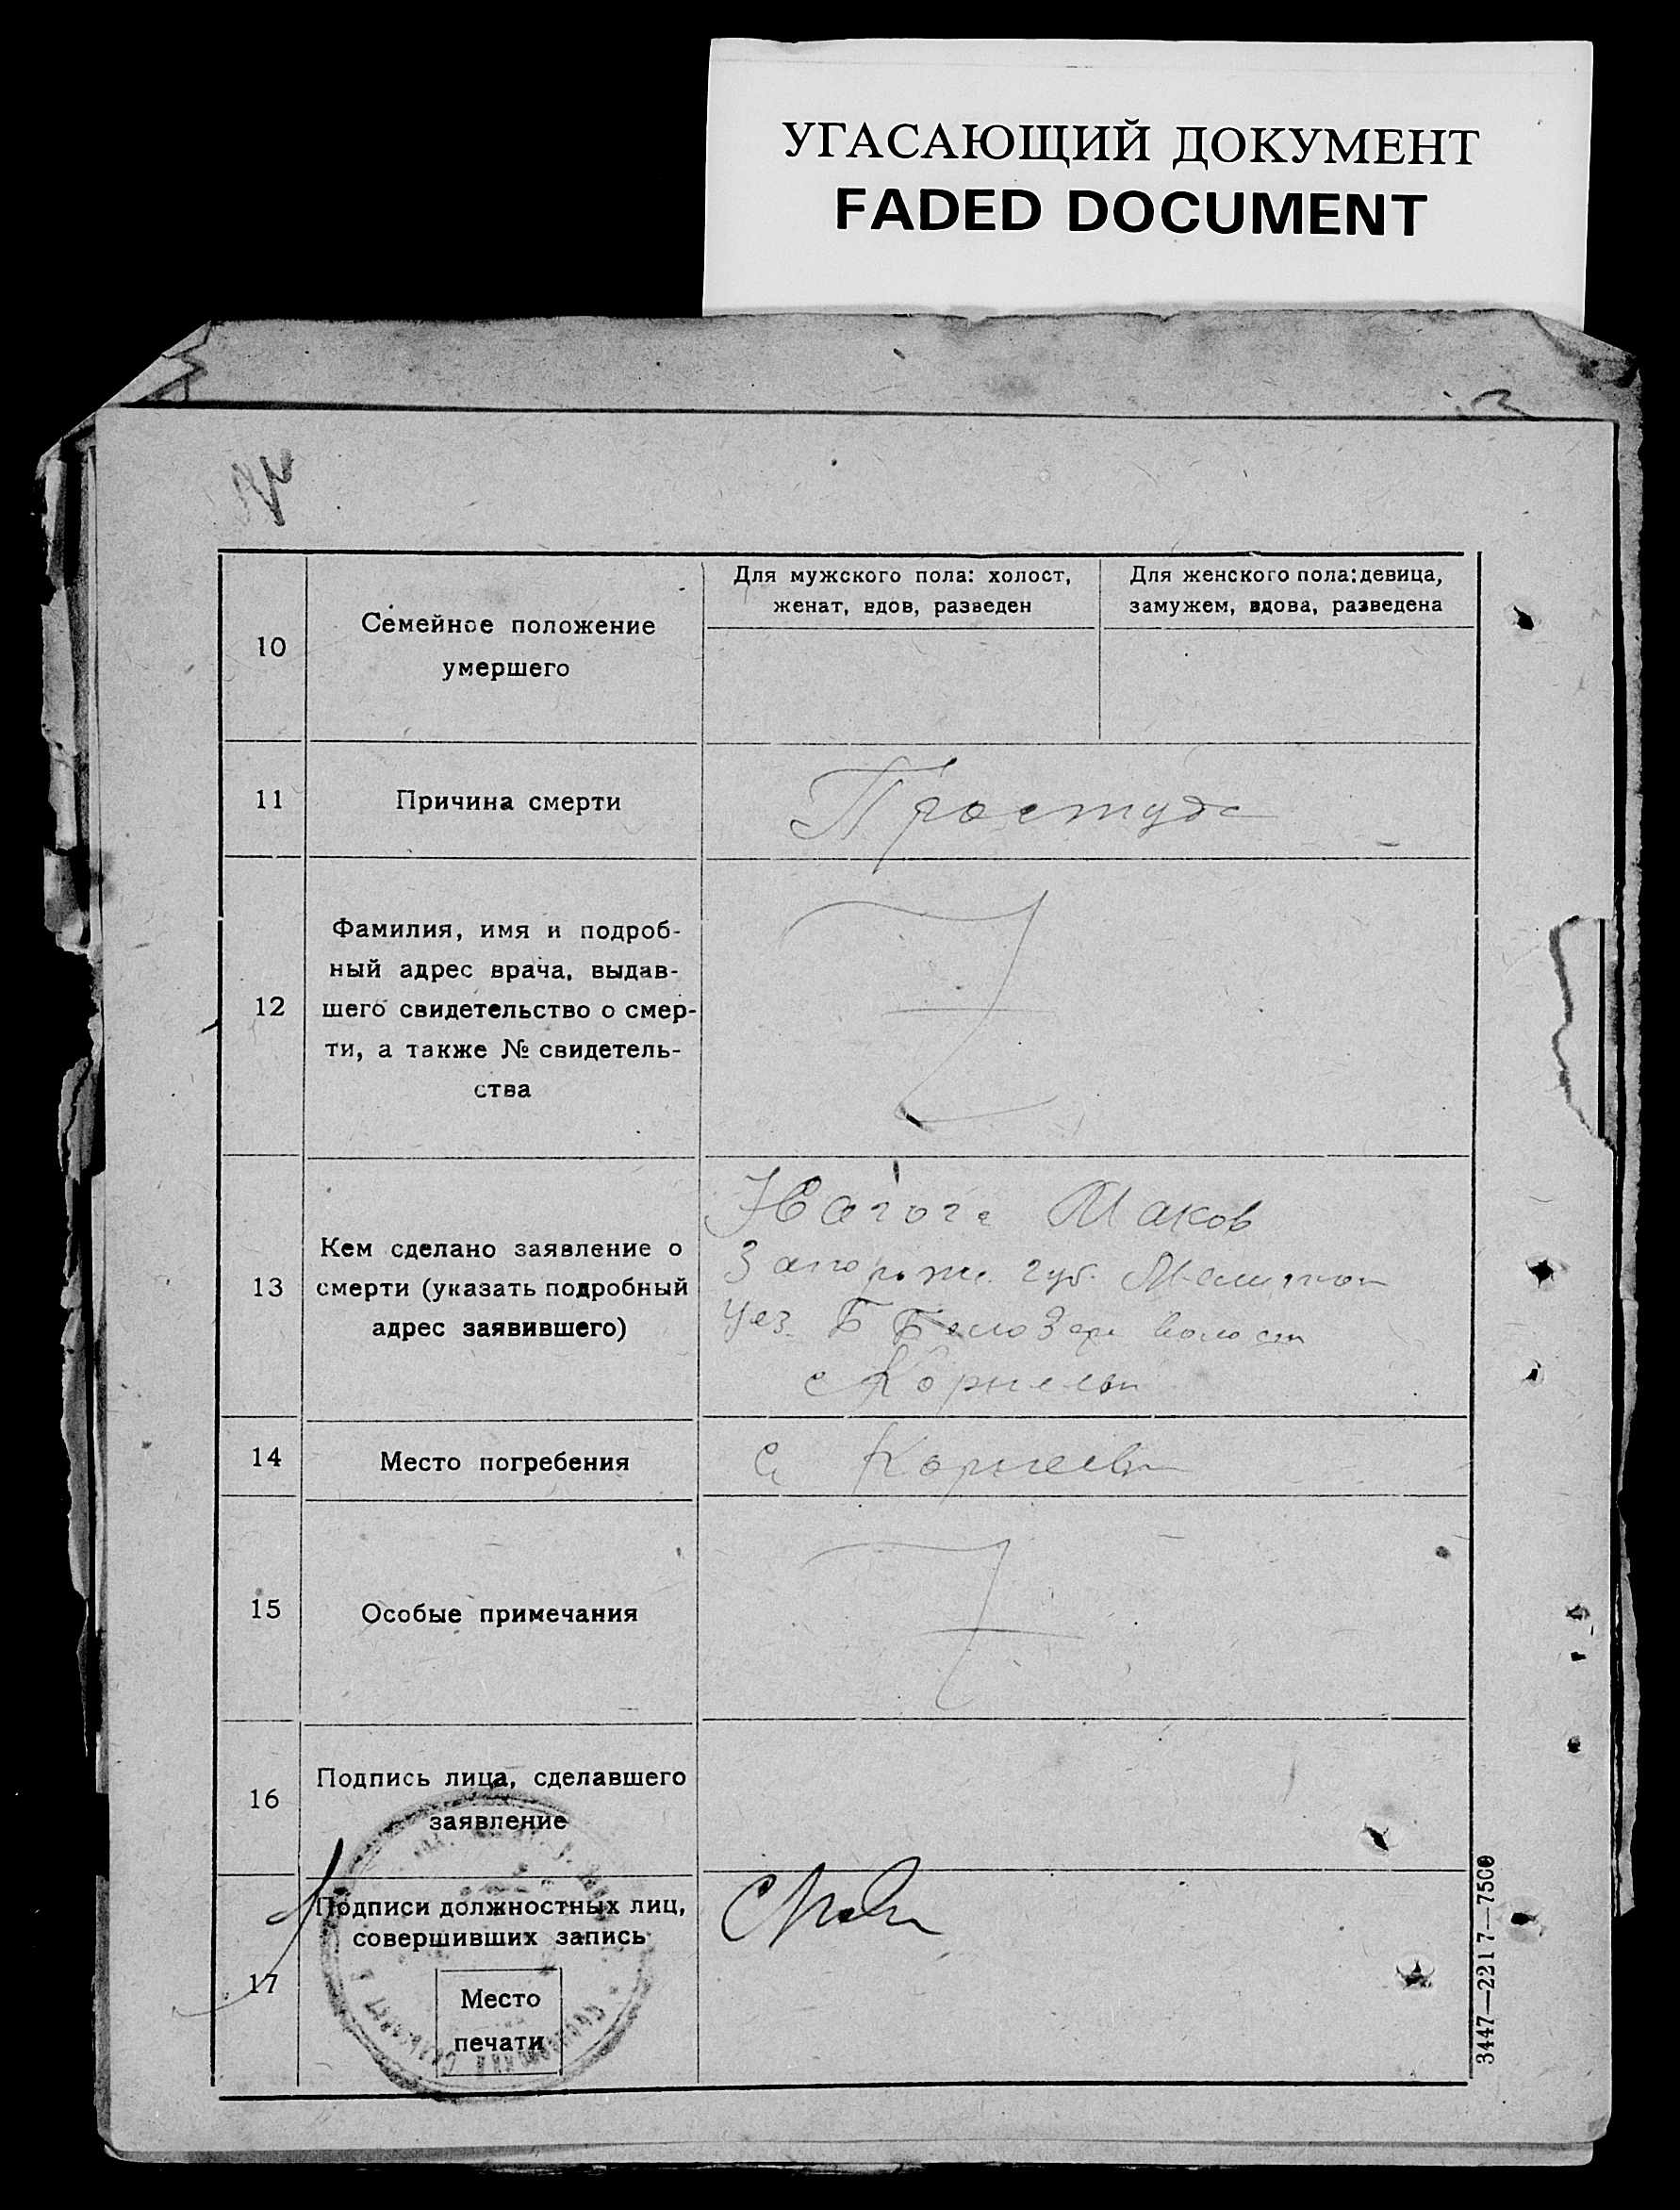 УГАСАЮЩИЙ ДОКУМЕНТ
FADED DOCUMENT
10
Семейное положение
умершего
Для мужского пола: холост,
женат, вдов, разведен
Для женского пола: девица,
замужем, вдова, разведена
11
Причина смерти
Простуда
12
Фамилия, имя и подроб-
ный адрес врача, выдав-
шего свидетельство о смер-
ти, а также № свидетель-
ства
13
Кем сделано заявление о
смерти (указать подробный
адрес заявившего)
Запорож. губ.
Уез. Б Белозер волости
с
14
Место погребения
с
15
Особые примечания
16
Подпись лица, сделавшего
заявление
17
Подписи должностных лиц,
совершивших запись
Место
печати
3447—2217—7500